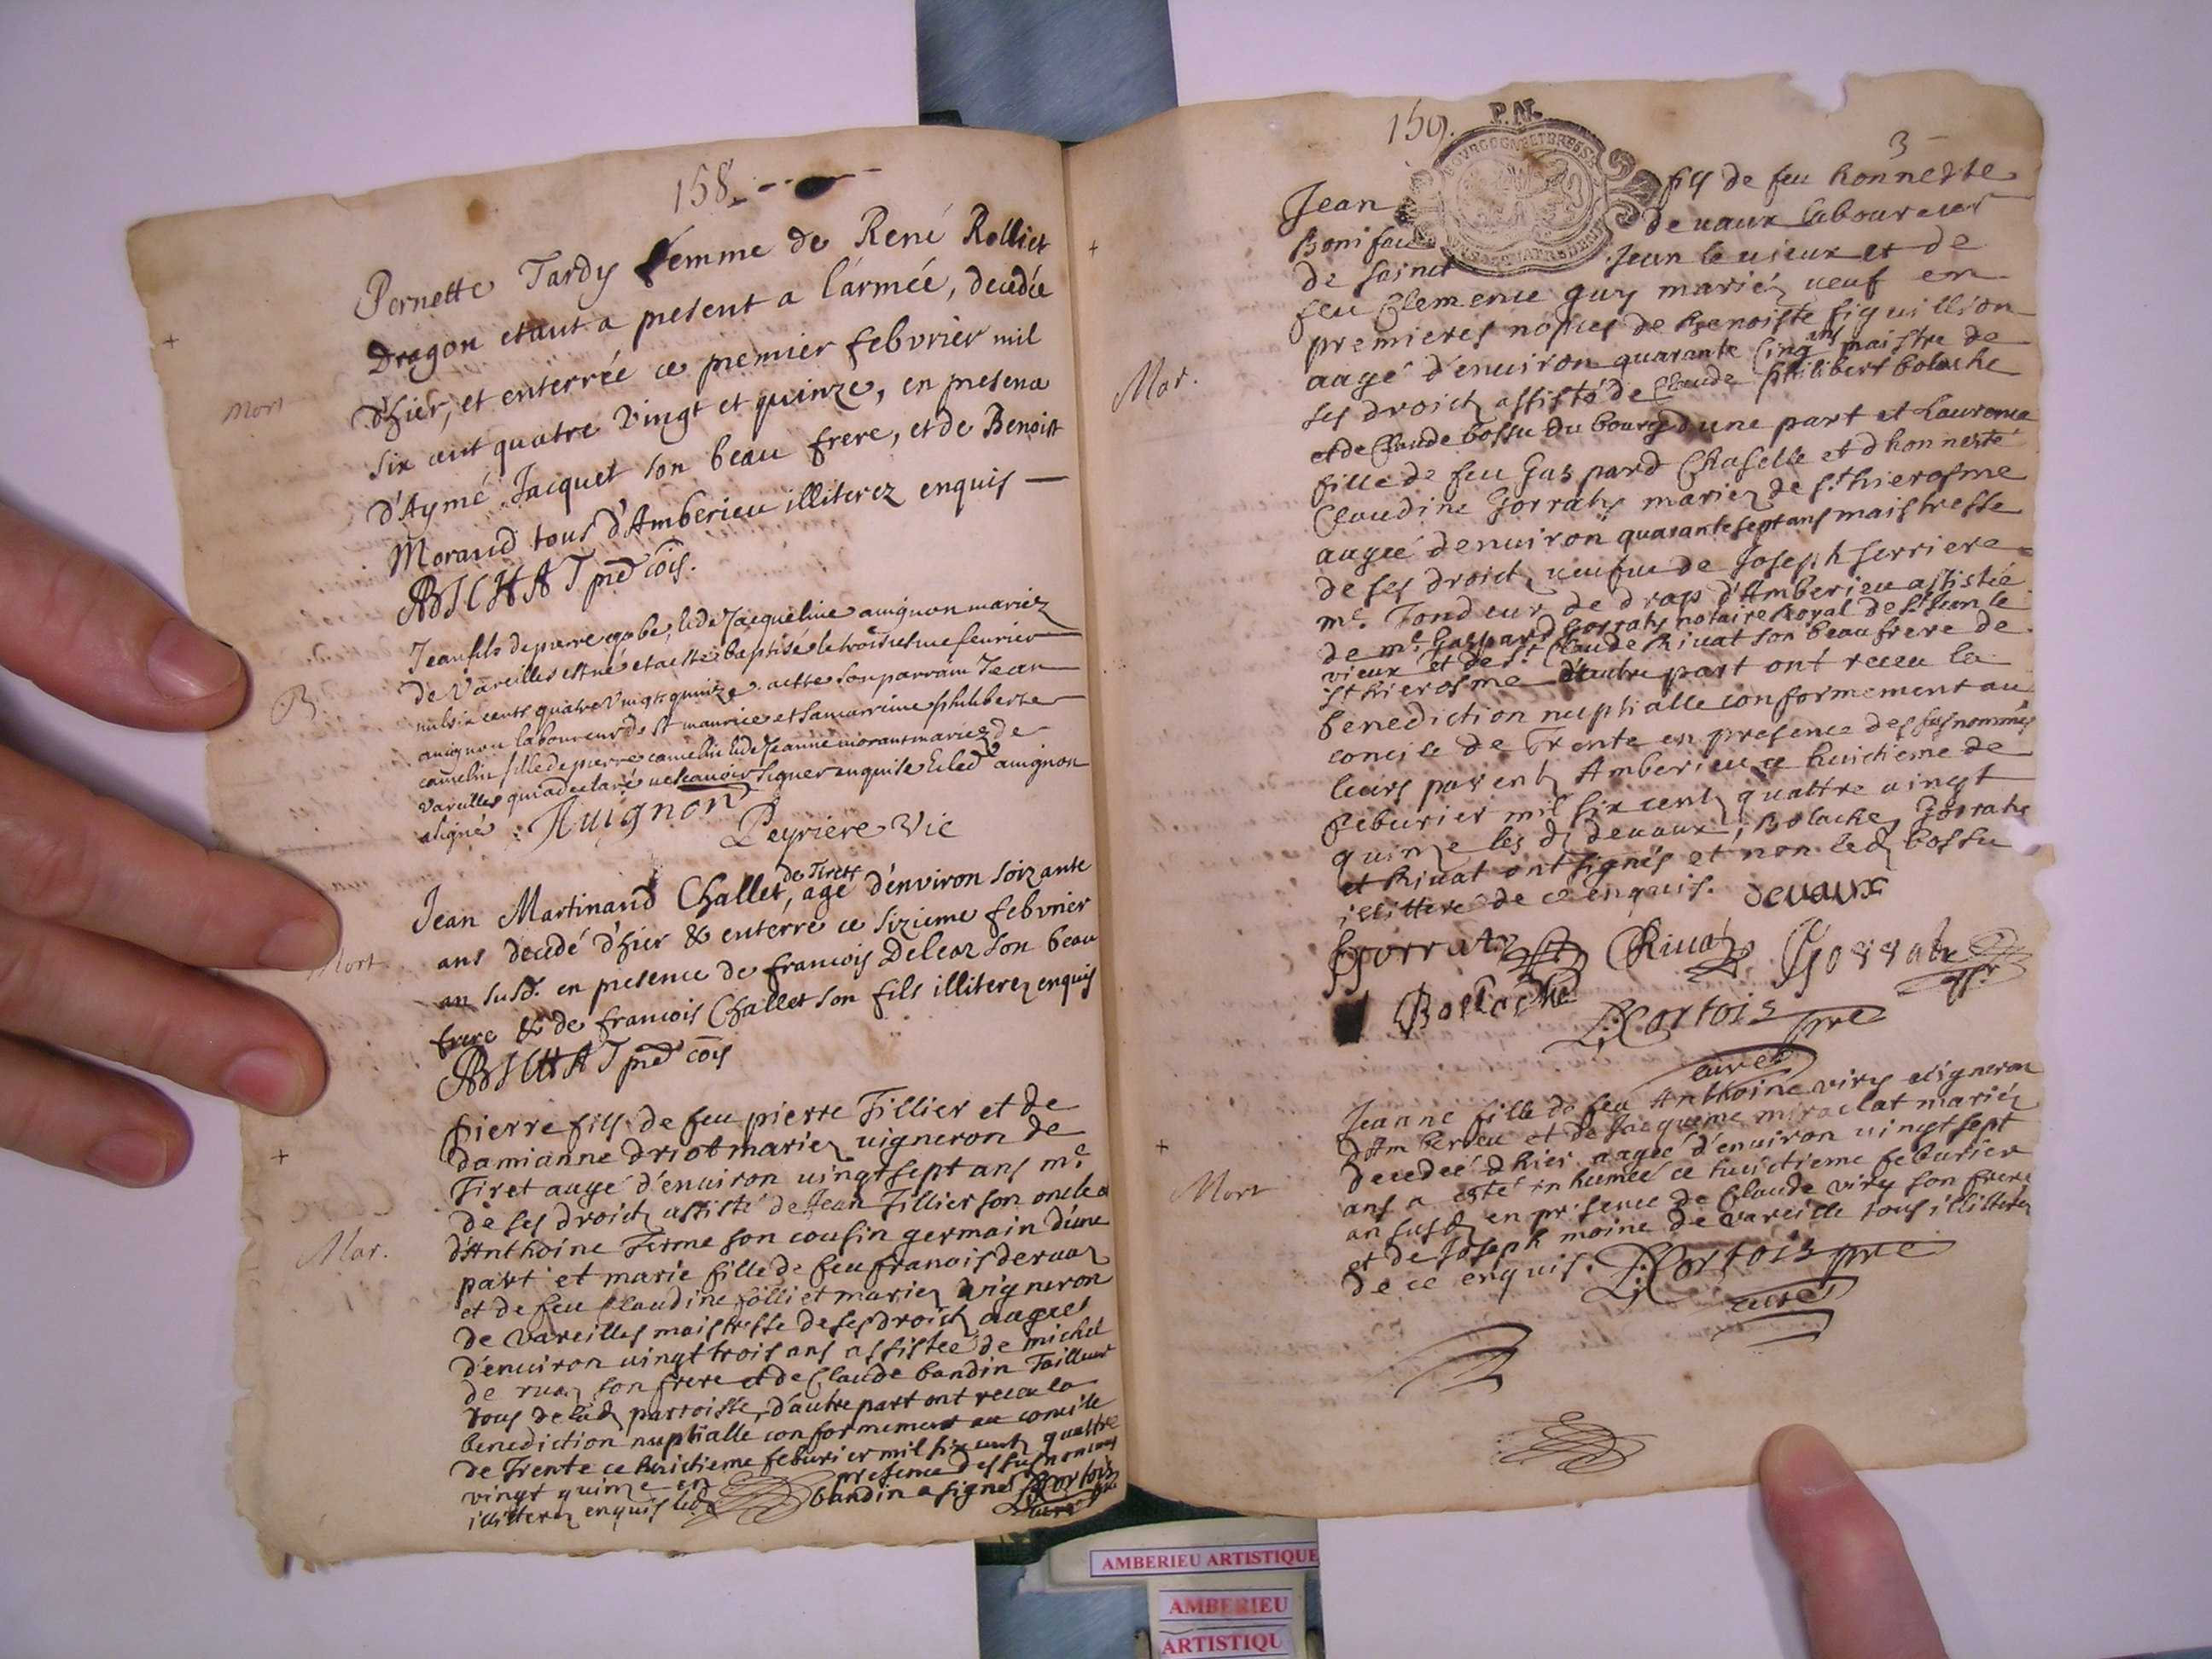 158
Pernette Tardy femme de René Rolliet
Dragon etant a present a l'armée, decedée
d'hier, et enterrée ce premier febvrier mil
six cent quatre vingt et quinze, en presence
d'Aymé Jacquet son beau frere, et de Benoist
Morand tous d'Amberieu illiterez enquis
mort
Jean fils de pierre gobe, & de Jacqueline auignon mariez
de Vareilles est né et a esté baptisé le troisiesme feurier
mil six cents quatre vingts quinze a esté son parrain Jean
auignon laboureur de st maurice et sa marrine philiberte
camelin fille de pierre camelin & de Jeanne morant mariez de
Vareilles qui a declaré ne scauoir signer enquise & led auignon
a signé Auignon
Peyriere Vic
B.
de Tiret
Jean Martinand Challet, agé d'environ soixante
ans decedé d'hier & enterré ce sizieme febvrier
an susd. en presence de francois Deleaz son beau
frere & de francois Challet son fils illiterez enquis
Mort
pierre fils de feu pierre Tillier et de
damianne driot mariez uigneron de
Tiret aagé d'enuiron uingt sept ans me
de ses droictz assisté de Jean Tillier son oncle
d'Anthoine Ferme son cousin germain d'une
part et marie fille de feu francois deruaz
et de feu Claudine folliet mariez vigneron
de Vareilles maistresse de ses droictz aagée
d'enuiron uingt trois ans assistée de michel
de ruaz son frere et de Claude bandin Tailleur
tous de lad parroisse, d'autre part ont receu la
benediction nuptialle conformement au concile
de Trente ce huictieme feburier mil six centz quattre
vingt quinze en presence des susnommés
illitterez enquis led bandin a signé
Mar.
159.
P.N.
3
Jean fils de feu honneste
Boniface deuaux laboureur
de sainct Jean le uieux et de
feu Clemence guy mariez ueuf en
premieres nopces de Benoiste figuillion
aagé d'enuiron quarante cinq ans maistre de
ses droictz assisté de Claude philibert bolache
et de Claude bossu du bourg d'une part et Laurence
fille de feu Gaspard Chaselle et d'honneste
Claudine Gorraty mariez de st hierosme
aagée d'enuiron quarante sept ans maistresse
de ses droictz ueufue de Joseph serriere
me. Tondeur de drap d'Amberieu assistée
de me. Gaspard Gorraty notaire Royal de st Jean le
vieux et de st Claude Riuat son beau frere de
st hierosme d'autre part ont receu la
benediction nuptialle conformement au
concile de Trente en presence des susnommés
leurs parentz Amberieu ce huictieme de
feburier mil six centz quattre uingt
quinze les dz deuaux, Bolache, Gorraty
et Riuat ont signés et non led bossu
illittere de ce enquis. devaux
Gorraty Riuat Gorraty
Bollache
Cortois pre
curé
Mar.
Jeanne fille de feu Anthoine viry uigneron
d'Amberieu et de Jacqueme miraclat mariez
decedée d'hier aagée d'enuiron uingt sept
ans a esté inhumée ce huictieme feburier
an susd en presence de Claude viry son frere
et de Joseph moine de vareille tous illitterez
de ce enquis. Cortois pre
curé
Mort
AMBERIEU ARTISTIQUE
AMBERIEU
ARTISTIQU